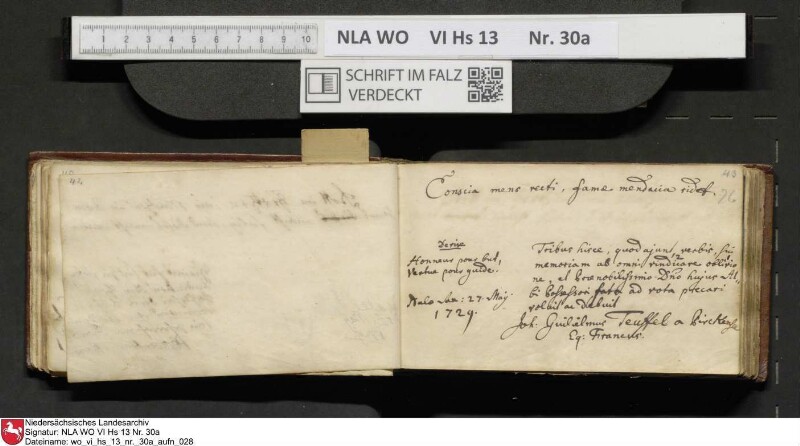 1 2 3 4 5 6 7 8 9 10
NLA WO VI Hs 13 Nr. 30a
SCHRIFT IM FALZ
VERDECKT
44
40
76
Conscia mens recti, famæ mendacia ridet.
Devise
Honneur pour but,
Vertue pour guide.
27. May.
1729.
Tribus hisce, quod ajunt, verbis, sui
memoriam ab omni vindicare oblivio
ne, et Prænobilissimo Dño hujus Al-
bi Possessori fata ad vota precari
voluit ac debuit
Joh. Guilielmus Teuffel a Birckensee
Eq: Francus.
Niedersächsisches Landesarchiv
Signatur: NLA WO VI Hs 13 Nr. 30a
Dateiname: wo_vi_hs_13_nr._30a_aufn_028